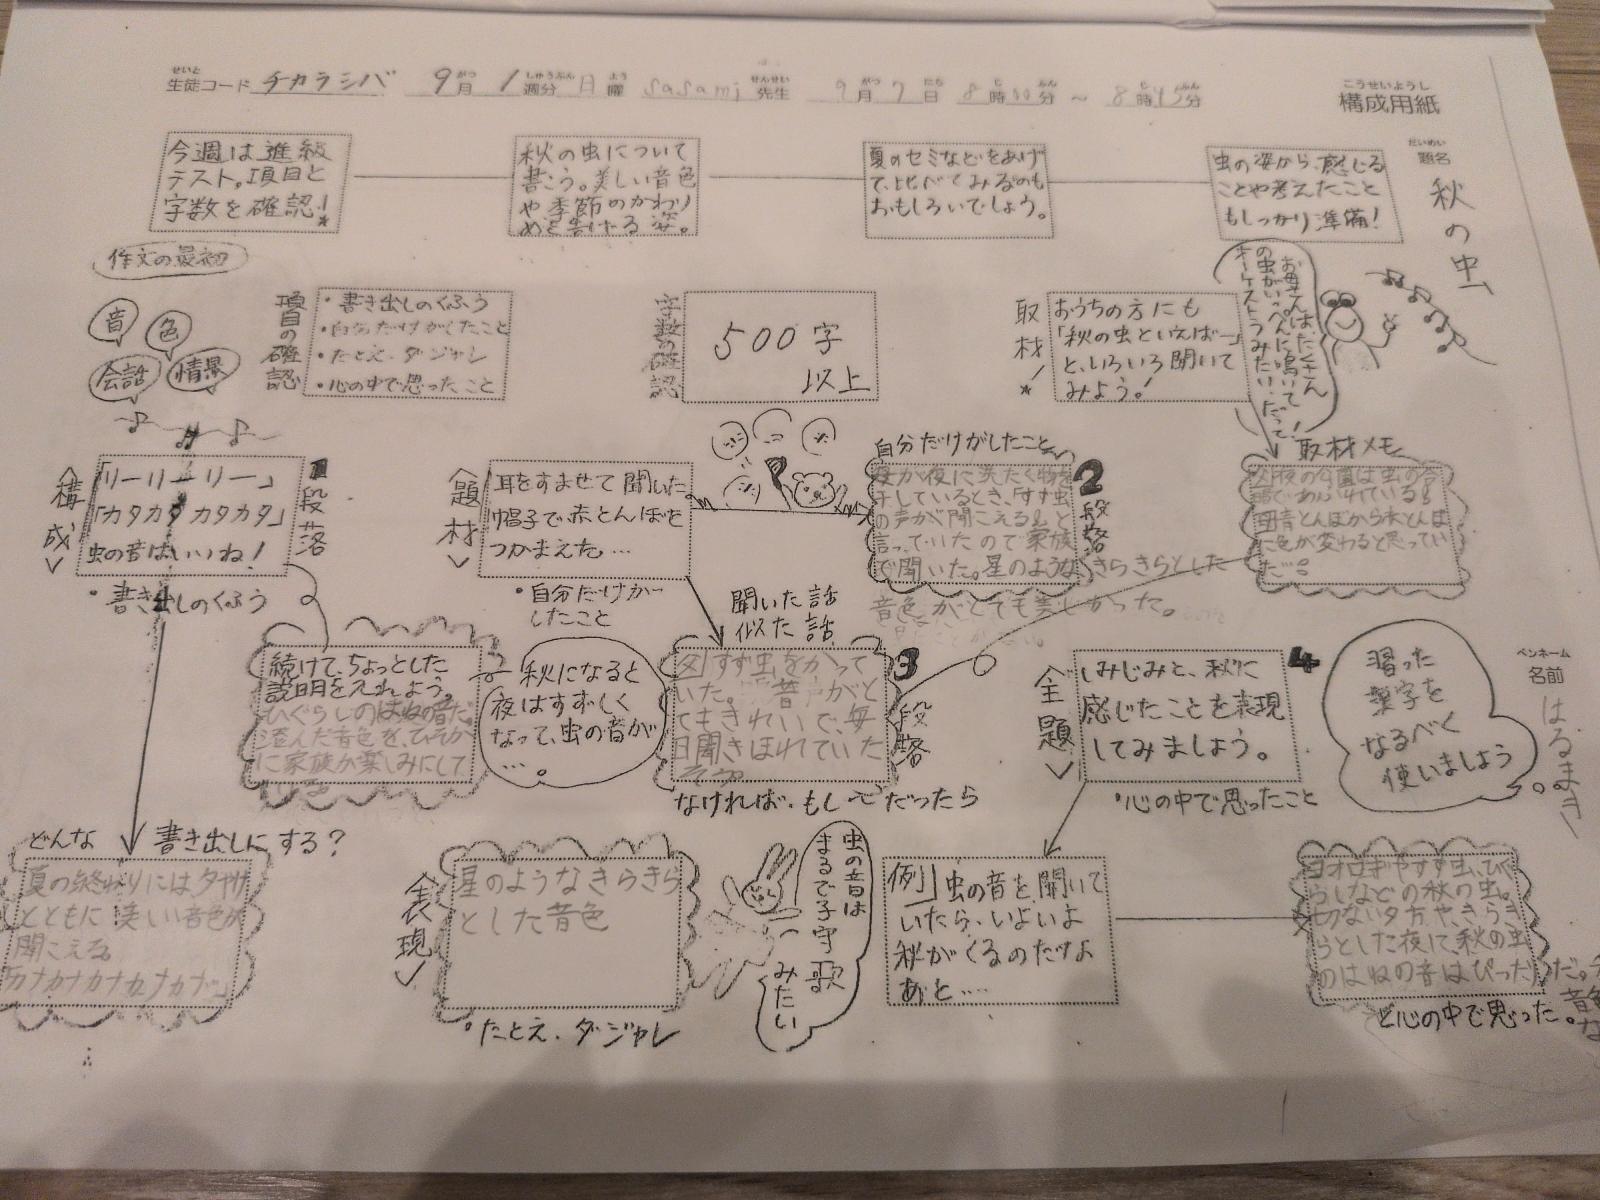 生徒コード チカラシバ 9月 1週分 日曜 sasami先生 9月7日 8時00分 ~ 8時45分
構成用紙
題名
秋の虫
今週は進級
テスト。項目と
字数を確認!
秋の虫について
書こう。美しい音色
や季節のかわり
めを告げる姿。
夏のセミなどをあげ
て、比べてみるのも
おもしろいでしょう。
虫の姿から、感じる
ことや考えたこと
もしっかり準備!
作文の最初
音
色
会話
情景
項目の確認
・書き出しのくふう
・自分だけがしたこと
・たとえ、ダジャレ
・心の中で思ったこと
字数の確認
500字
以上
取材!
おうちの方にも
「秋の虫といえば…」
と、いろいろ聞いて
みよう!
お母さんは、たくさん
の虫がいっぺんに鳴いて!
オーケストラみたい!だって!
構成
「リーリーリー」
「カタカタカタカタ」
虫の音はいいね!
1段落
・書き出しのくふう
題材
耳をすませて聞いた
帽子で赤とんぼを
つかまえた。…
・自分だけが
したこと
自分だけがしたこと
母が夜に洗たく物を
干しているとき、「すず虫
の声が聞こえる」と
言っていたので家族
で聞いた。星のようなきらきらとした
音色がとても美しかった。
2段落
取材メモ
は虫の
から赤とんぼ
に色が変わると思ってい
た。
続けて、ちょっとした
説明を入れよう。
ひぐらしのはねの音だ
澄んだ音色を、ひそか
に家族が楽しみにして
秋になると
夜はすずしく
なって、虫の音が
…。
聞いた話
似た話
父すず虫をかって
いた。音声がと
てもきれいで、毎
日聞きほれていた
そう。
3段落
なければ、もし〜だったら
主題
しみじみと、秋に
感じたことを表現
してみましょう。
4
・心の中で思ったこと
習った
漢字を
なるべく
使いましょう
ペンネーム
名前
はるまき
どんな書き出しにする?
夏の終わりには夕方
とともに美しい音色が
聞こえる。
「カナカナカナカナカナ」
表現
星のようなきらきら
とした音色
・たとえ、ダジャレ
虫の音は
まるで子守歌
みたい
例」虫の音を聞いて
いたら、いよいよ
秋がくるのだなよ
あと……
コオロギやすず虫、ひぐ
らしなどの秋の虫。
切ない夕方や、きらき
らとした夜に、秋の虫
のはねの音はぴったりだ。
と心の中で思った。